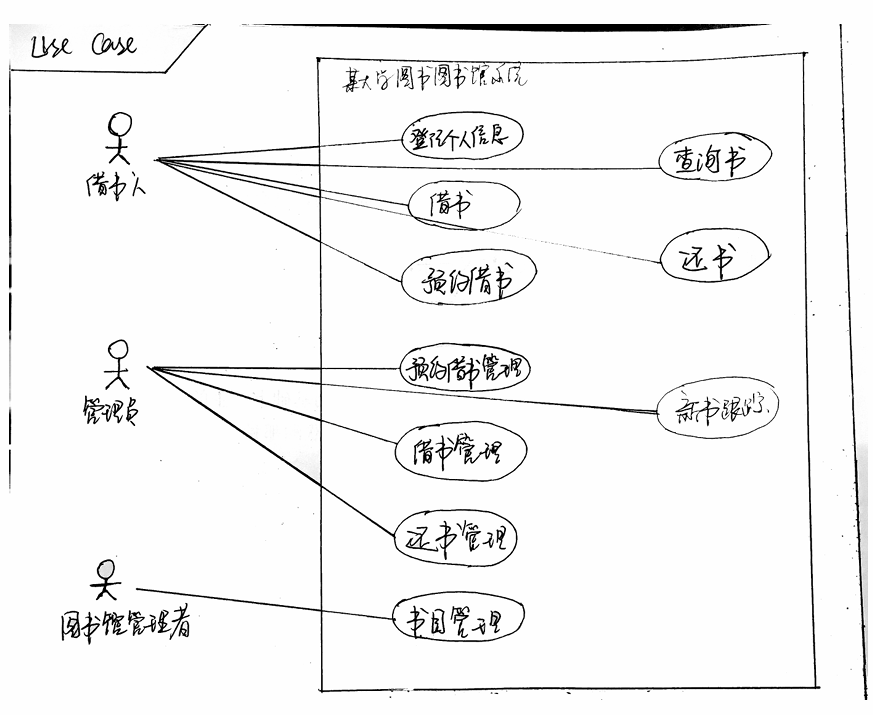 Use Case
某大学图书图书馆系统
登记个人信息
查询书
借书人
借书
还书
预约借书
预约借书管理
管理员
新书跟踪
借书管理
还书管理
图书馆管理者
书目管理